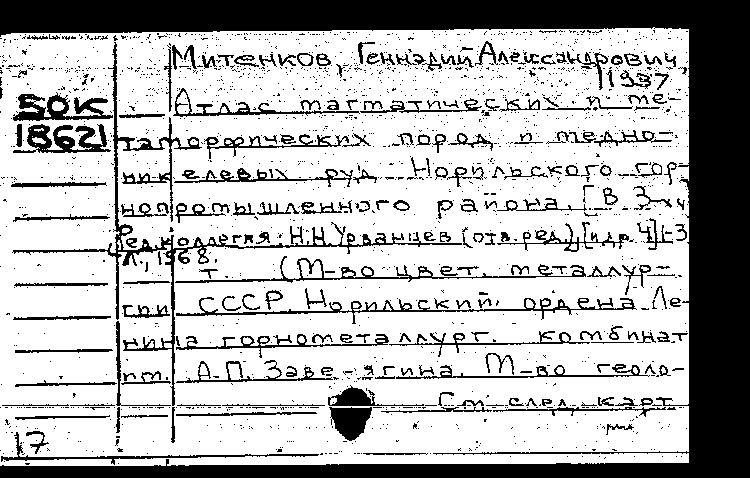 Митенков, Геннадий Александрович,
1937
50К
18621
Атлас магматических и ме-
таморфических пород и медно-
никелевых руд Норильского гор-
нопромышленного района. [В 3-х ч]
Ред. коллегия: Н.Н. Урванцев (отв. ред.), [и др. 4] 1-3
Л., 1968.
т. (М-во цвет. металлур-
гии СССР. Норильский ордена Ле-
нина горнометаллург. комбинат
им. А.П. Заве-ягина. М-во геоло-
См след. карт
17